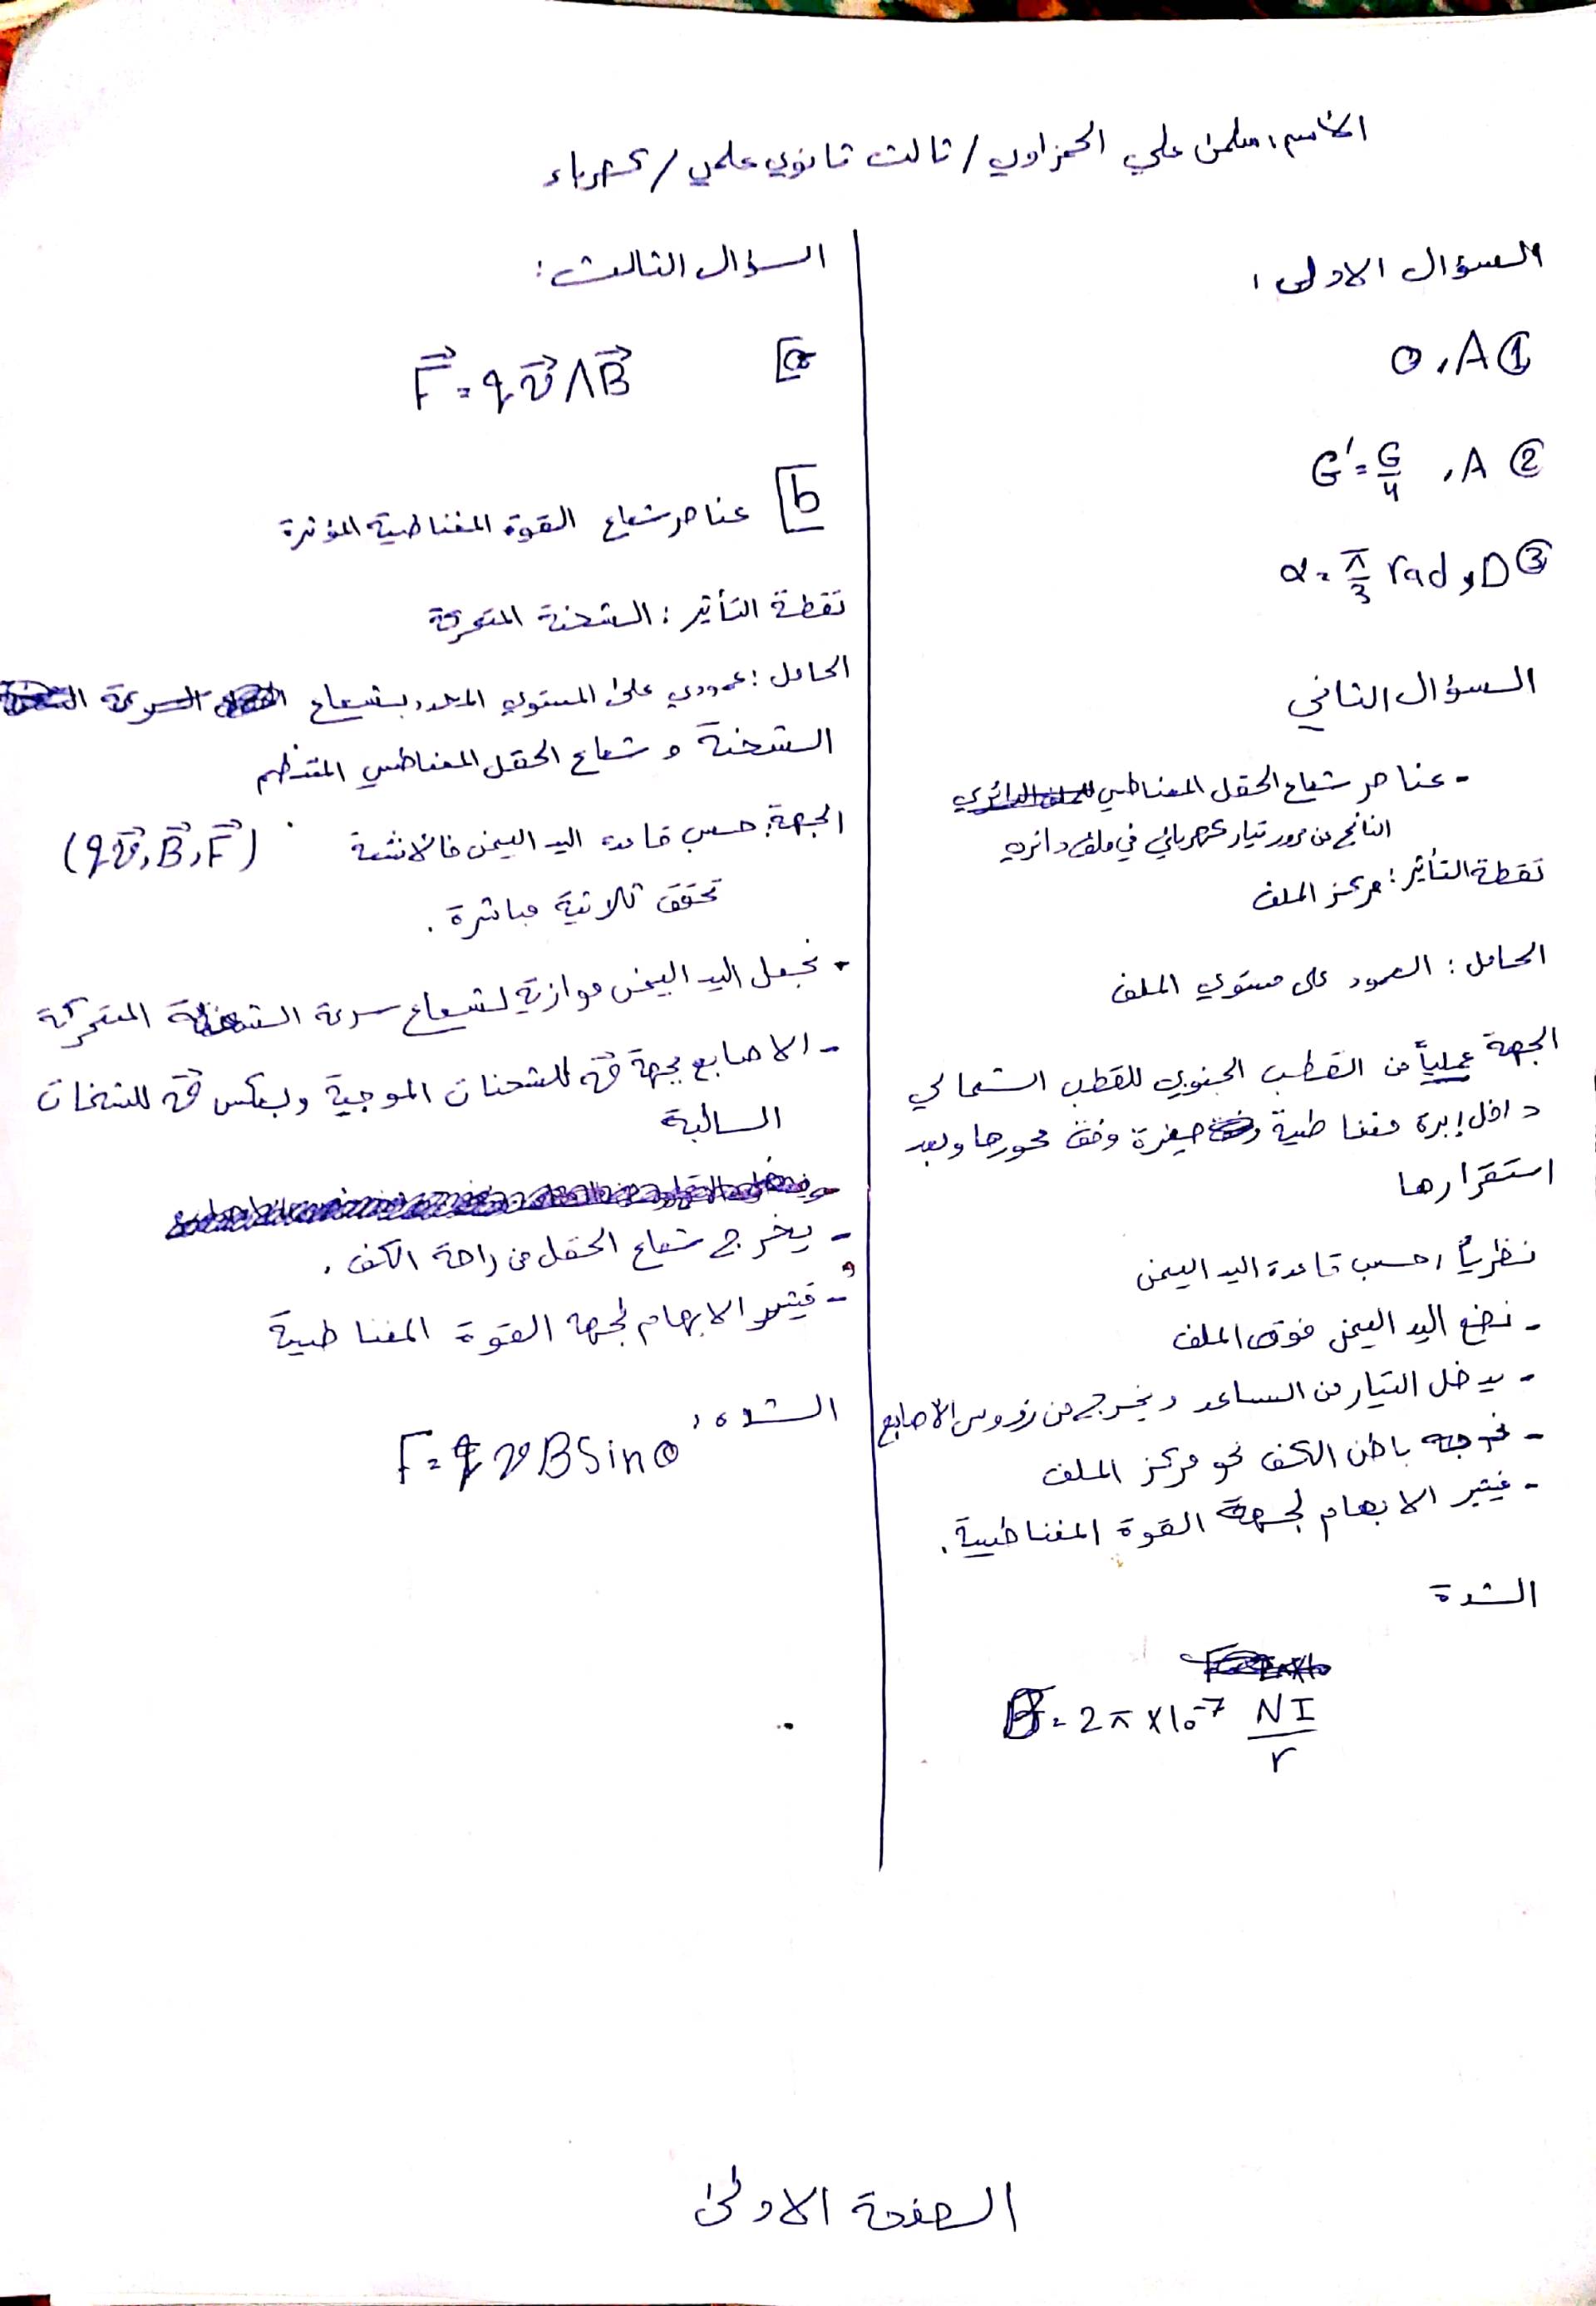 الاسم: سلمى علي الحمزاوي / ثالث ثانوي علمي / كهرباء
السؤال الاول:
① A, 0
② A, G' = G/4
③ D, α = π/3 rad
السؤال الثاني
- عناصر شعاع الحقل المغناطيسي
الناتج عن مرور تيار كهربائي في ملف دائري
نقطة التأثير: مركز الملف
الحامل: العمود على مستوي الملف
الجهة عملياً من القطب الجنوبي للقطب الشمالي
داخل إبرة مغناطيسية صغيرة وفق محورها وبعد
استقرارها
نظرياً: حسب قاعدة اليد اليمنى
- نضع اليد اليمنى فوق الملف
- يدخل التيار من الساعد ويخرج من رؤوس الاصابع
- نوجه باطن الكف نحو مركز الملف
- فيشير الابهام لجهة القوة المغناطيسية.
الشدة
B = 2π × 10⁻⁷ NI/r
السؤال الثالث:
a
F⃗ = q v⃗ Λ B⃗
b عناصر شعاع القوة المغناطيسية المؤثرة
نقطة التأثير: الشحنة المتحركة
الحامل: عمودي على المستوي المحدد بشعاع السرعة
الشحنة وشعاع الحقل المغناطيسي المنتظم
الجهة: حسب قاعدة اليد اليمنى فالاشعة (q v⃗, B⃗, F⃗)
تحقق ثلاثية مباشرة.
- نجعل اليد اليمنى موازية لشعاع سرعة الشحنة المتحركة
- الاصابع بجهة v⃗ للشحنات الموجبة وبعكس v⃗ للشحنات
السالبة
- يخرج شعاع الحقل من راحة الكف.
- فيشير الابهام لجهة القوة المغناطيسية
الشدة: F = q v B Sin θ
الصفحة الاولى